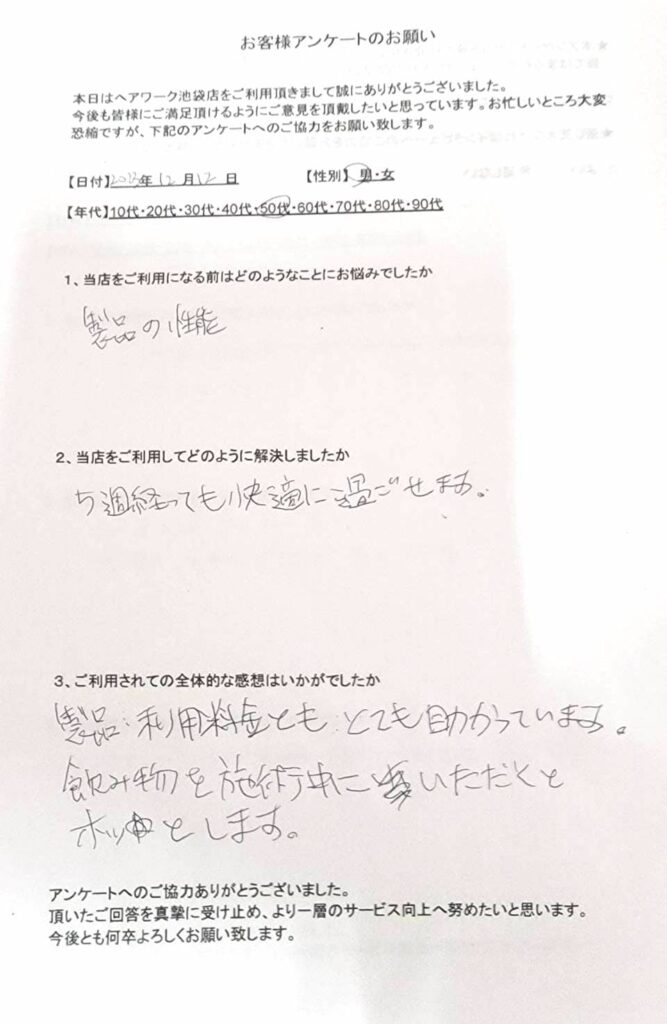 お客様アンケートのお願い
本日はヘアワーク池袋店をご利用頂きまして誠にありがとうございました。
今後も皆様にご満足頂けるようにご意見を頂戴したいと思っています。お忙しいところ大変
恐縮ですが、下記のアンケートへのご協力をお願い致します。
【日付】2023年 12月 12日 【性別】 男・女
【年代】10代・20代・30代・40代・50代・60代・70代・80代・90代
1、当店をご利用になる前はどのようなことにお悩みでしたか
製品の性能
2、当店をご利用してどのように解決しましたか
5週経っても快適に過ごせます。
3、ご利用されての全体的な感想はいかがでしたか
製品:利用料金とも とても助かっています。
飲み物を施術中にいただくと
ホッとします。
アンケートへのご協力ありがとうございました。
頂いたご回答を真摯に受け止め、より一層のサービス向上へ努めたいと思います。
今後とも何卒よろしくお願い致します。